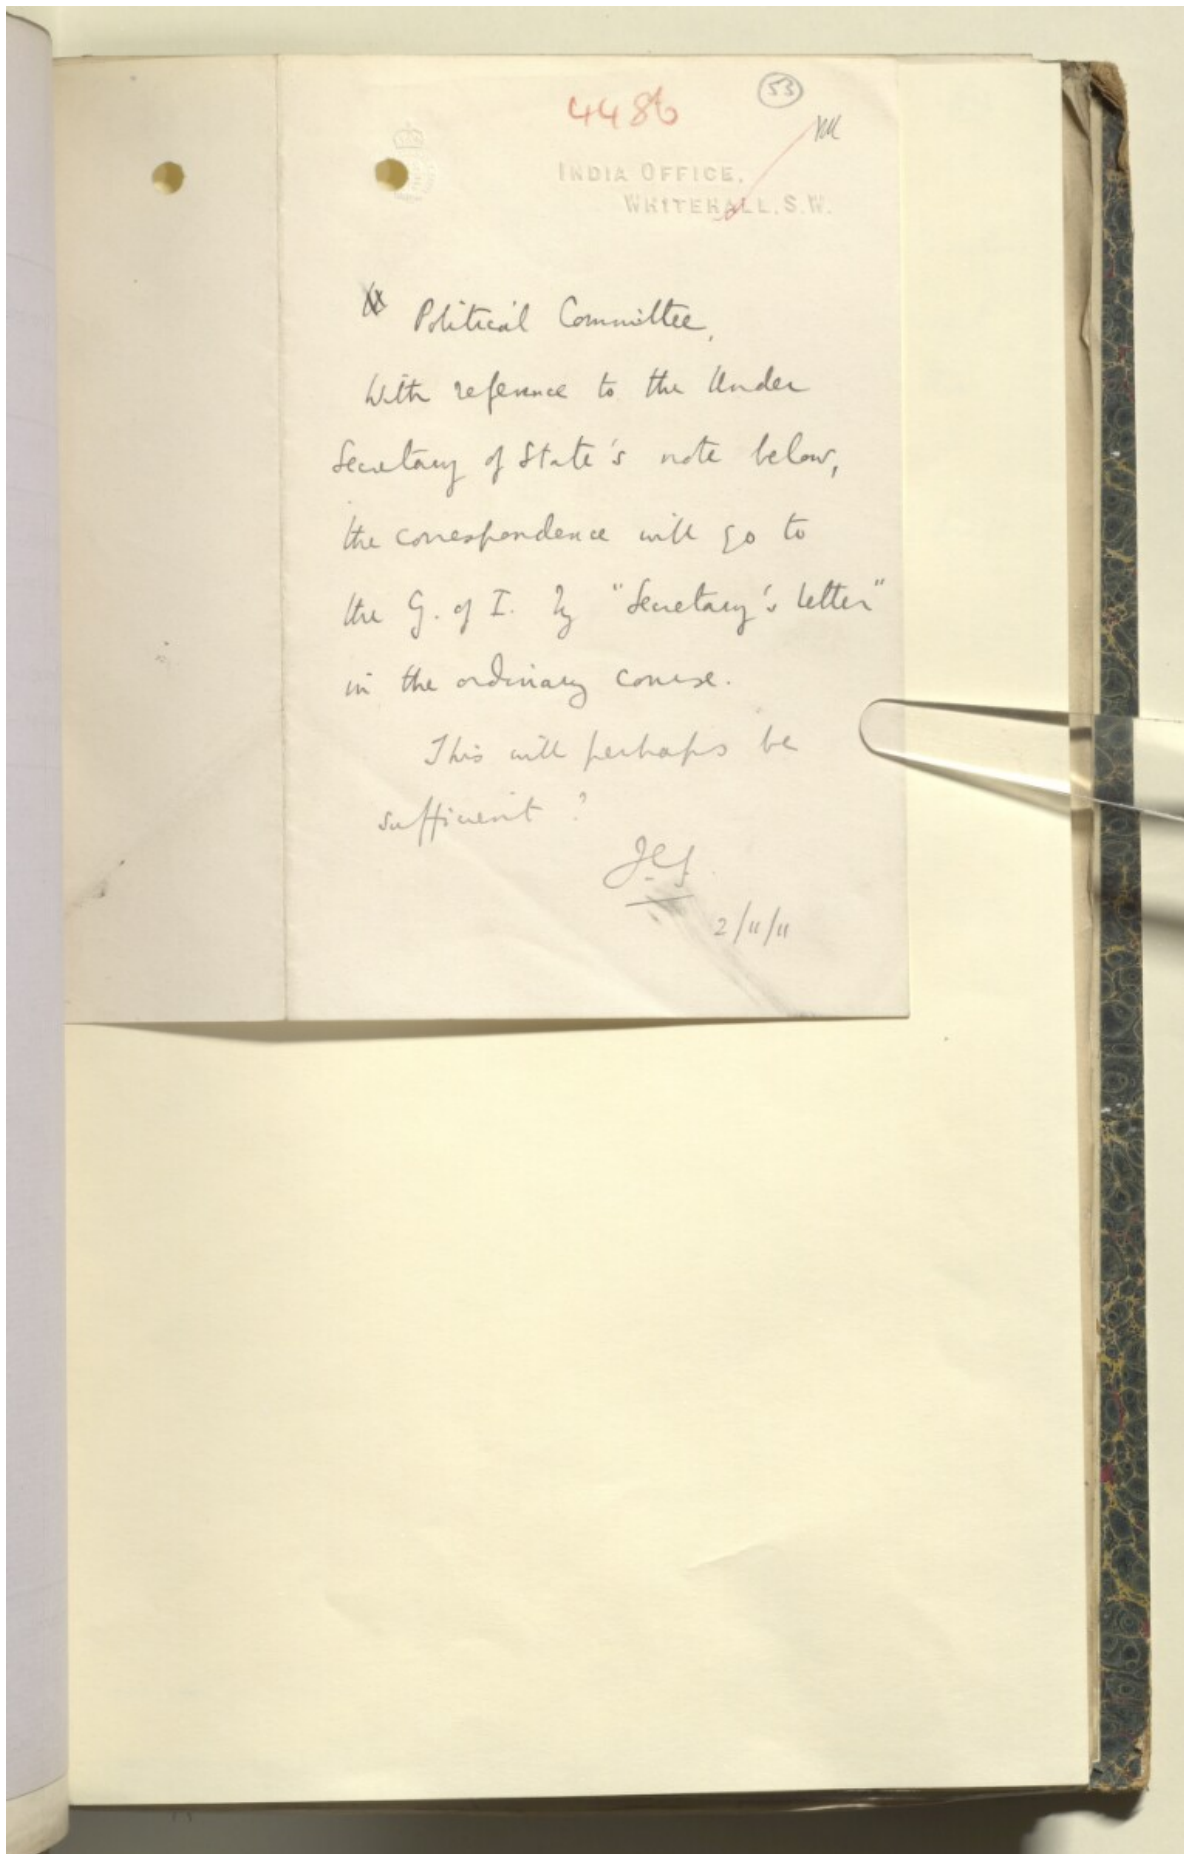 4486
53
INDIA OFFICE,
WHITEHALL, S.W.
Political Committee,
With reference to the Under
Secretary of State's note below,
the correspondence will go to
the G. of I. by "Secretary's letter"
in the ordinary course.
This will perhaps be
sufficient ?
2/11/11